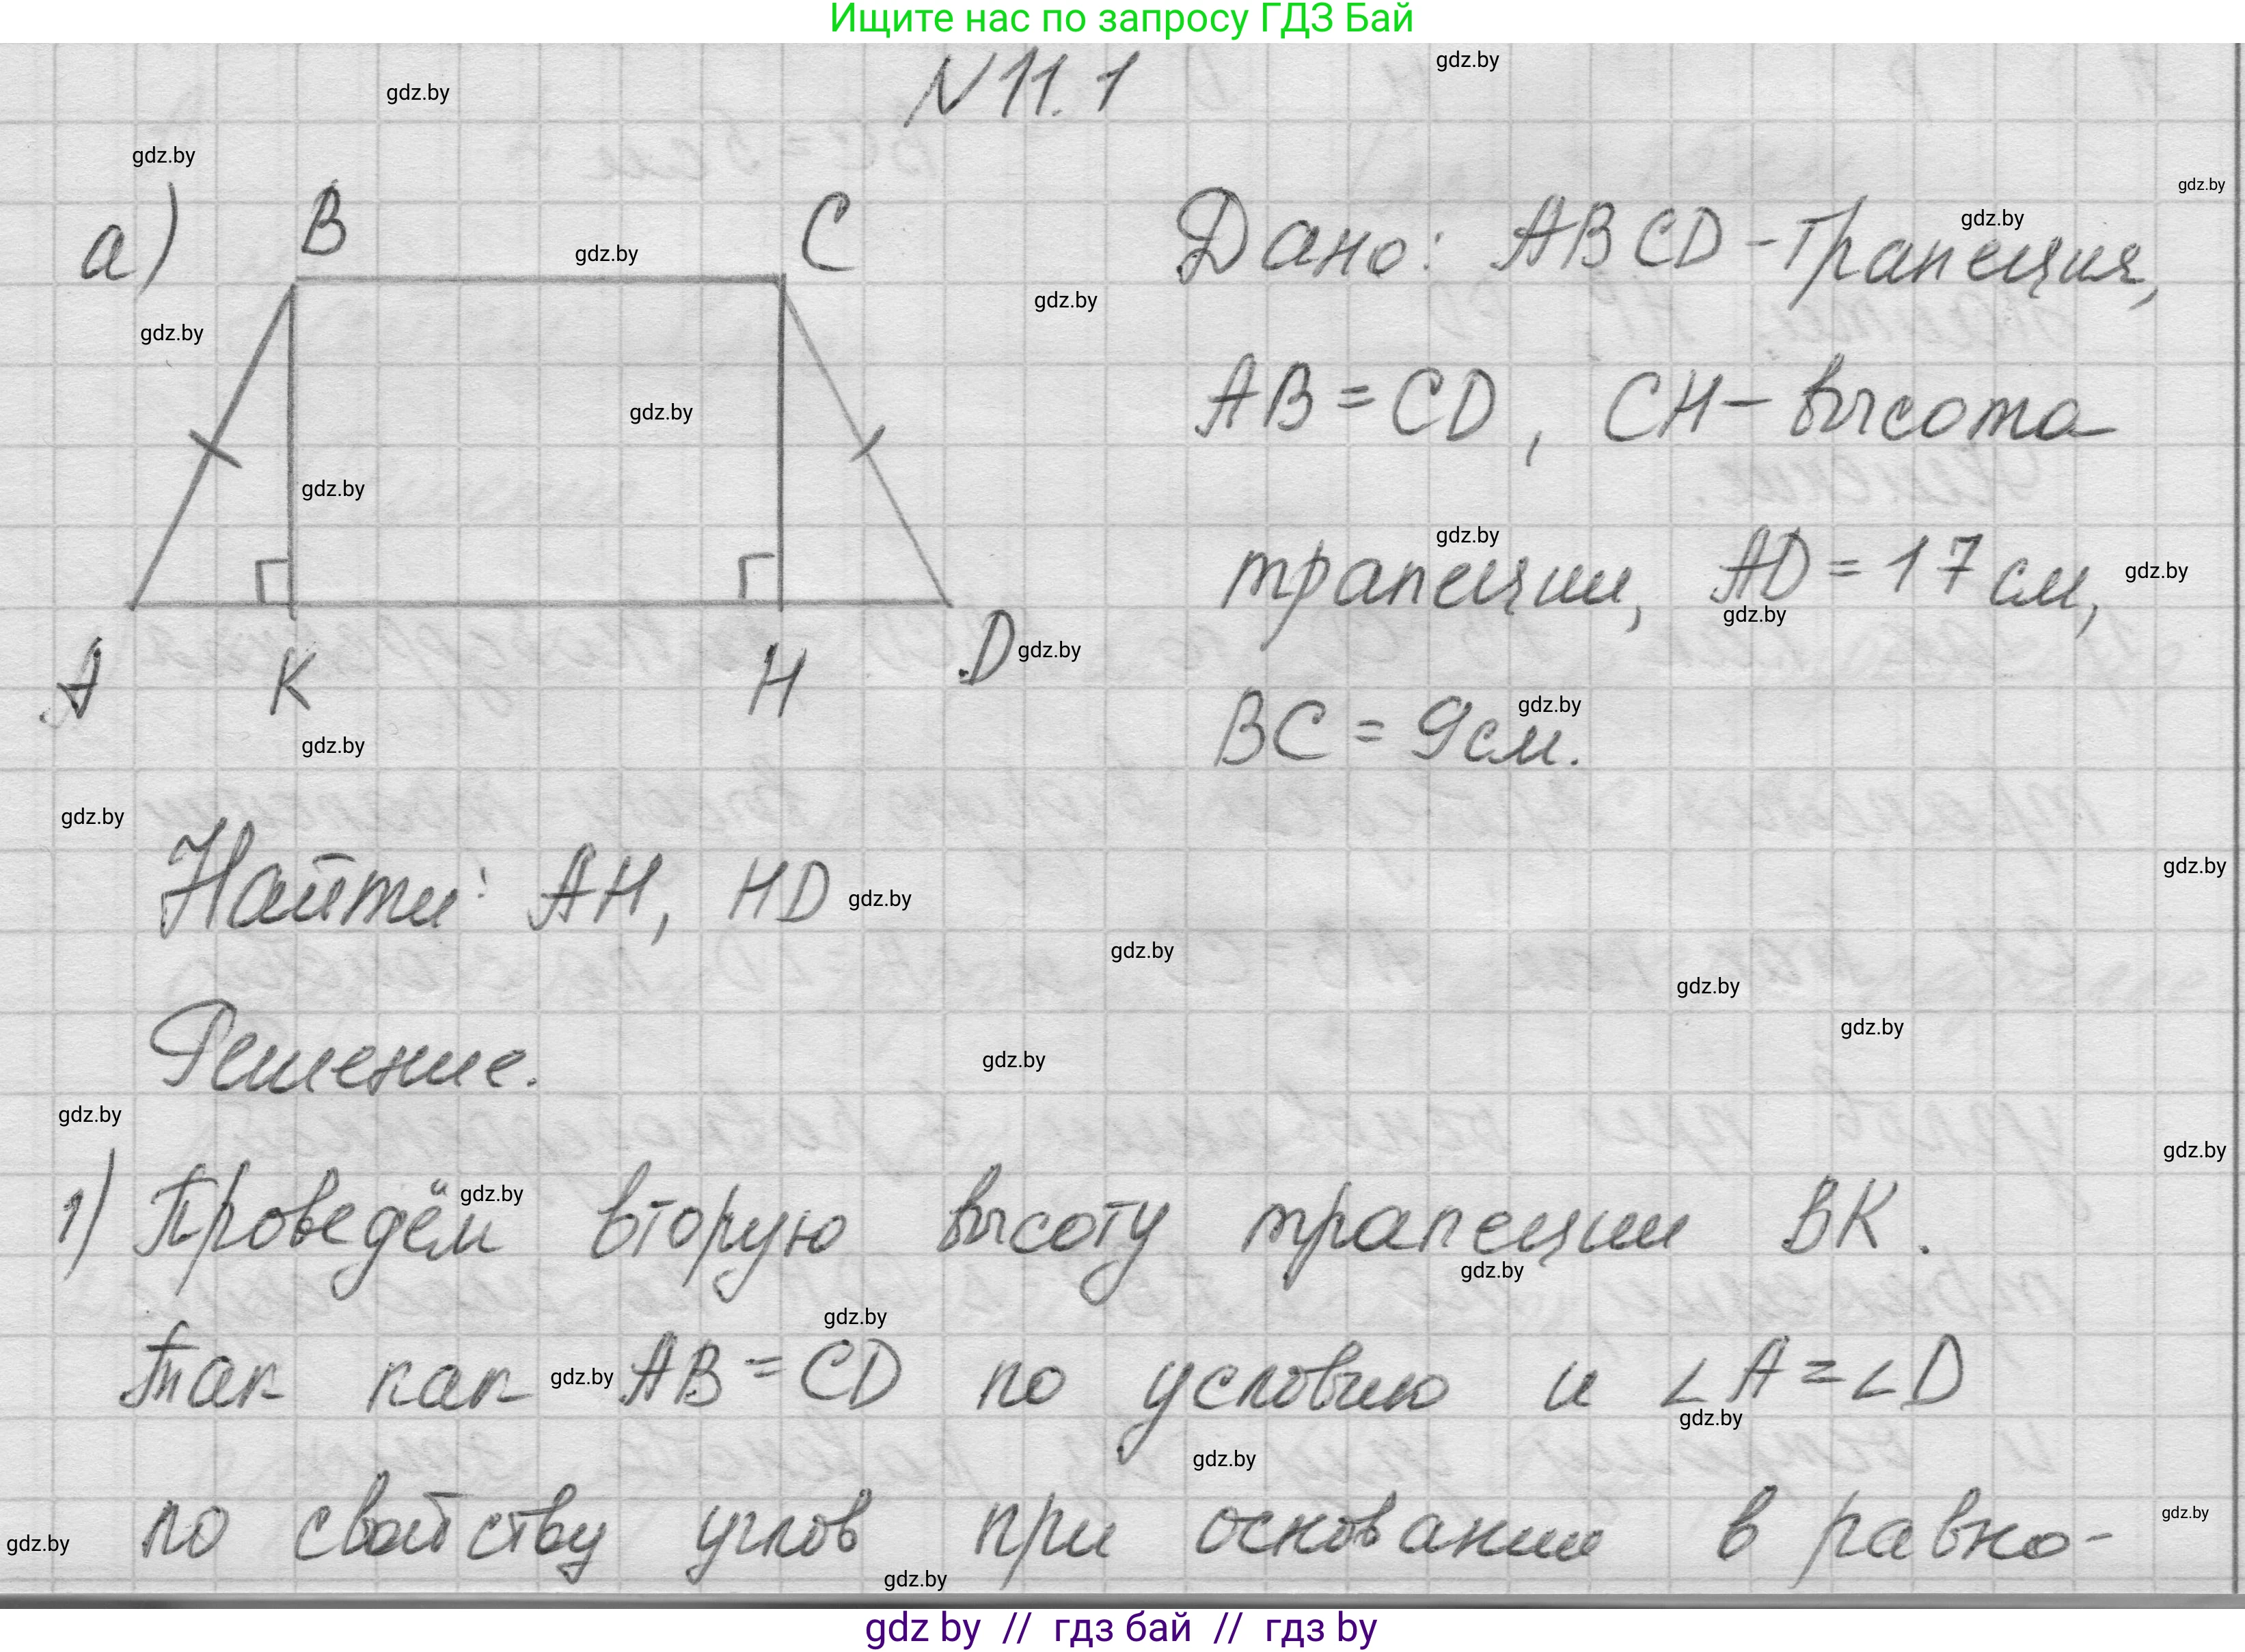 Ищите нас по запросу ГДЗ Бай
N 11.1
gdz.by
gdz.by
gdz.by
gdz.by
а)
B
C
Дано: ABCD - трапеция,
gdz.by
gdz.by
gdz.by
gdz.by
AB = CD, CH - высота
gdz.by
gdz.by
трапеции, AD = 17 см,
gdz.by
gdz.by
gdz.by
A
K
H
D
gdz.by
BC = 9 см.
gdz.by
gdz.by
gdz.by
gdz.by
Найти: AH, HD
gdz.by
gdz.by
gdz.by
gdz.by
Решение.
gdz.by
gdz.by
gdz.by
1) Проведём вторую высоту трапеции BK.
gdz.by
gdz.by
gdz.by
Так как AB = CD по условию и ∠A = ∠D
gdz.by
gdz.by
gdz.by
по свойству углов при основании в равно-
gdz.by
gdz.by
gdz.by
gdz by // гдз бай // гдз by